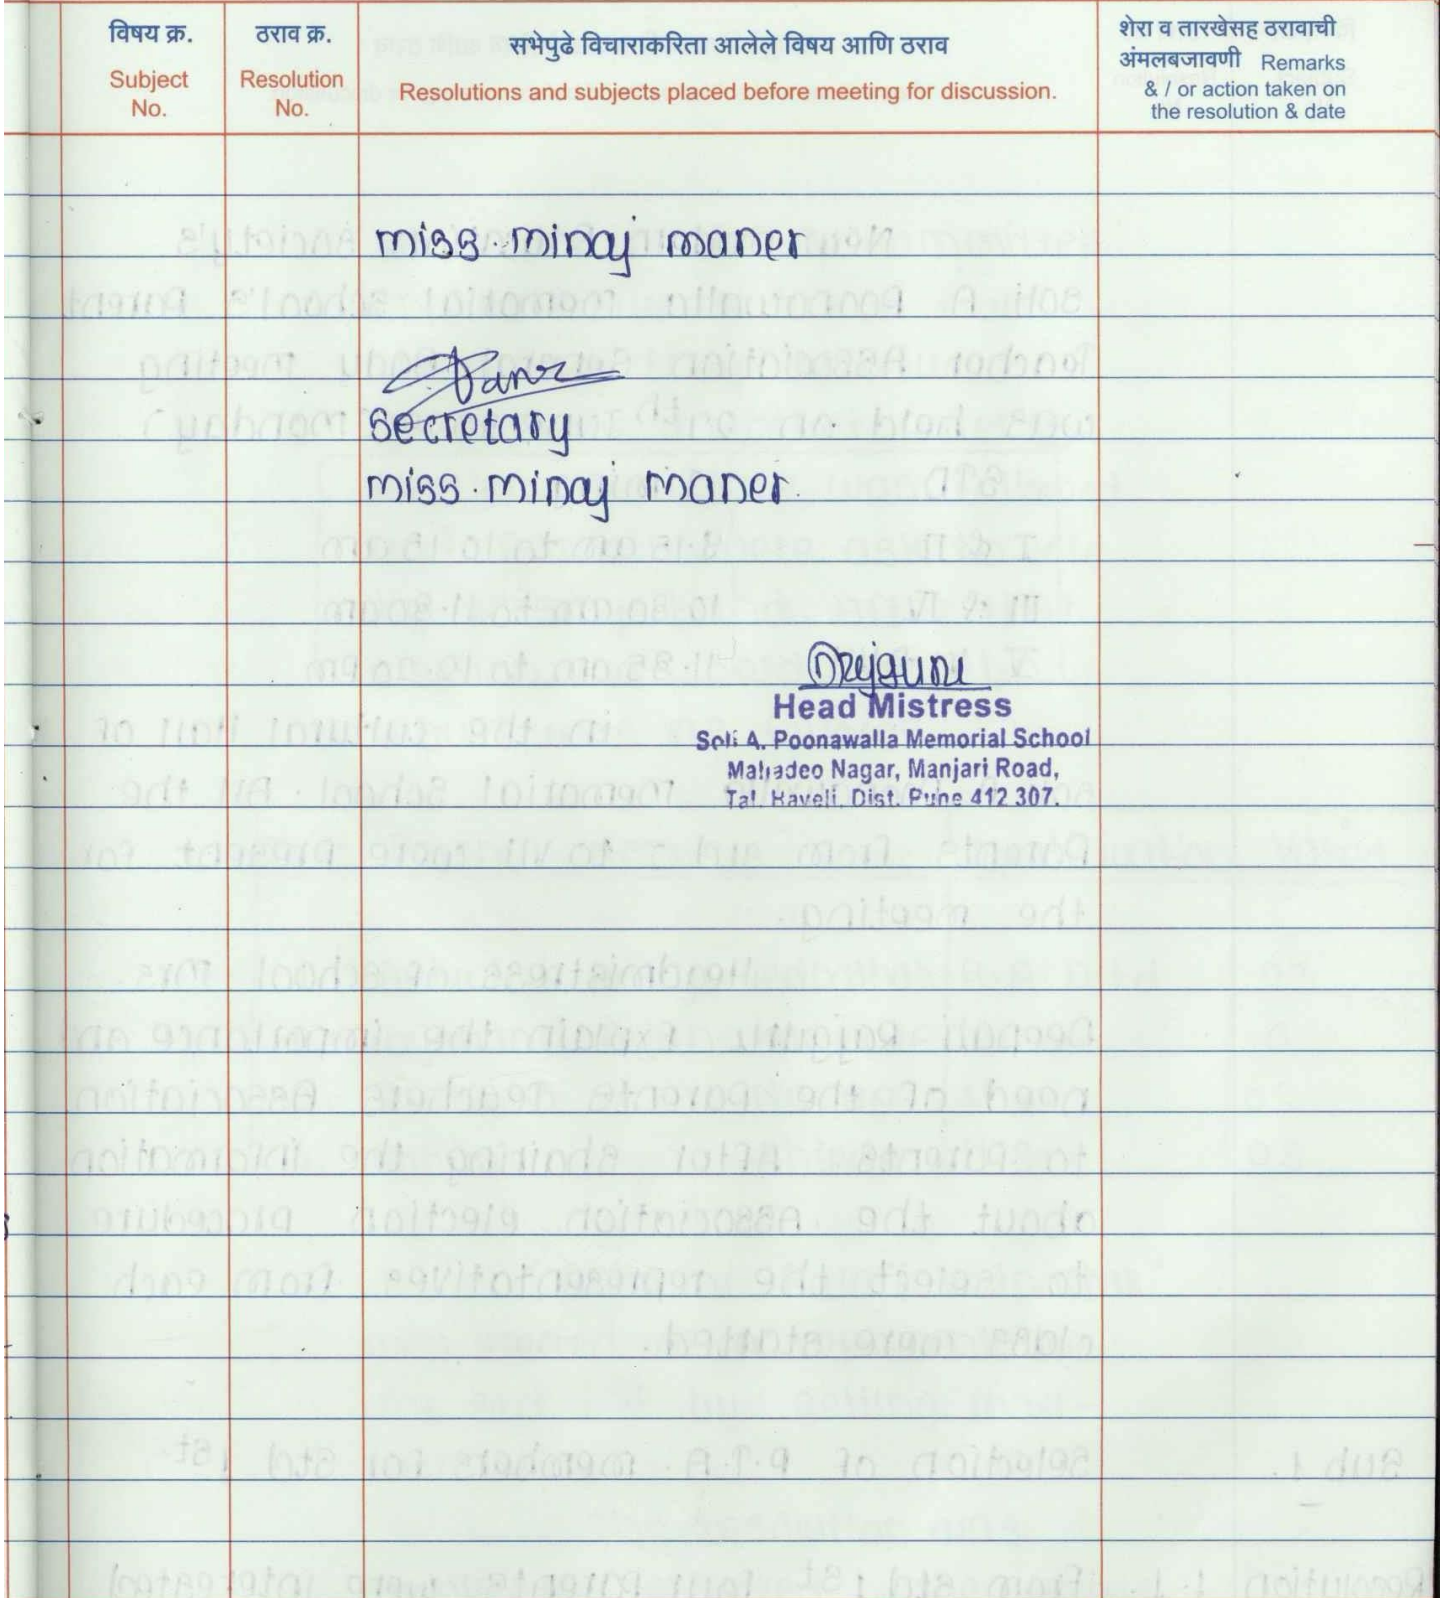 विषय क्र.
Subject
No.
ठराव क्र.
Resolution
No.
सभेपुढे विचाराकरिता आलेले विषय आणि ठराव
Resolutions and subjects placed before meeting for discussion.
शेरा व तारखेसह ठरावाची
अंमलबजावणी Remarks
& / or action taken on
the resolution & date
miss. minaj maner
secretary
miss. minaj maner.
Head Mistress
Soli A. Poonawalla Memorial School
Mahadeo Nagar, Manjari Road,
Tal. Haveli, Dist. Pune 412 307.